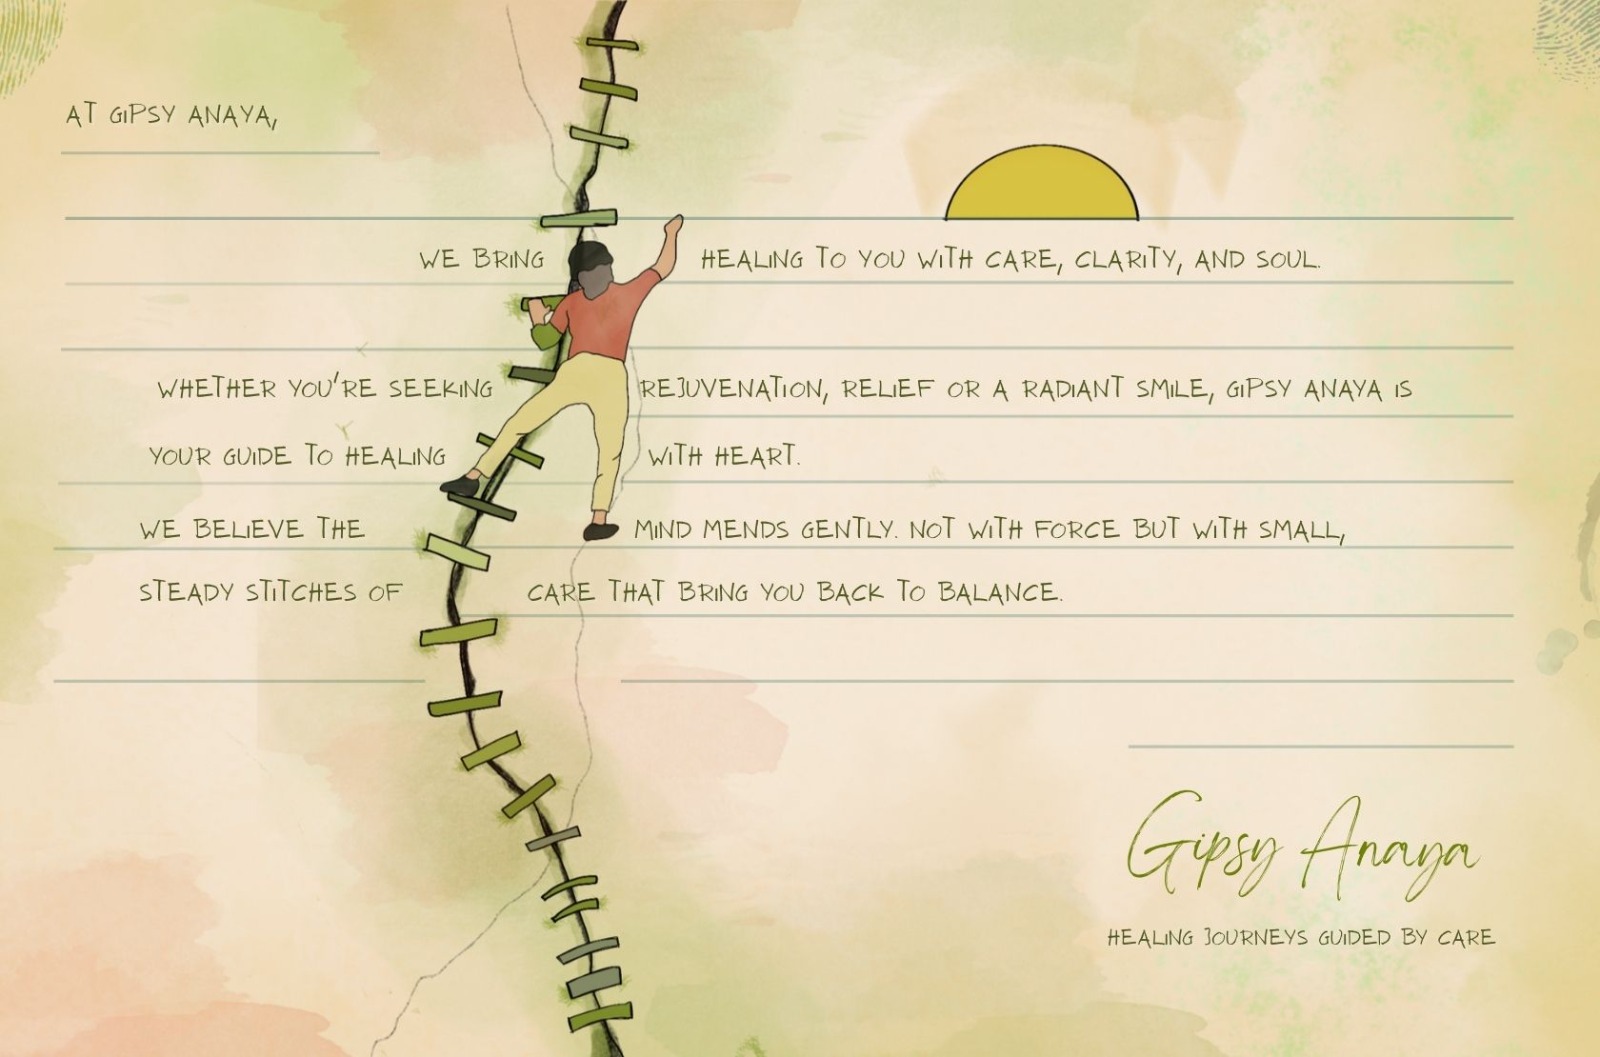 AT GIPSY ANAYA,
WE BRING HEALING TO YOU WITH CARE, CLARITY, AND SOUL.
WHETHER YOU'RE SEEKING REJUVENATION, RELIEF OR A RADIANT SMILE, GIPSY ANAYA IS
YOUR GUIDE TO HEALING WITH HEART.
WE BELIEVE THE MIND MENDS GENTLY. NOT WITH FORCE BUT WITH SMALL,
STEADY STITCHES OF CARE THAT BRING YOU BACK TO BALANCE.
Gipsy Anaya
HEALING JOURNEYS GUIDED BY CARE